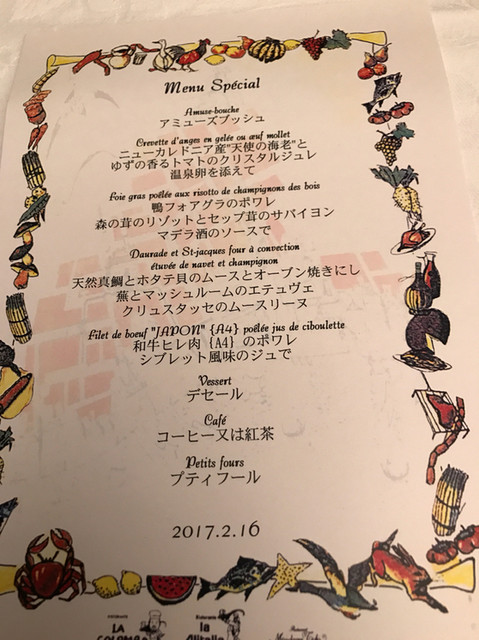 Menu Spécial
Amuse-bouche
アミューズブッシュ
Crevette d'anges en gelée ou œuf mollet
ニューカレドニア産"天使の海老"と
ゆずの香るトマトのクリスタルジュレ
温泉卵を添えて
Foie gras poêlée aux risotto de champignons des bois
鴨フォアグラのポワレ
森の茸のリゾットとセップ茸のサバイヨン
マデラ酒のソースで
Daurade et St-jacques four à convection
étuvée de navet et champignon
天然真鯛とホタテ貝のムースとオーブン焼きにし
蕪とマッシュルームのエテュヴェ
クリュスタッセのムースリーヌ
Filet de boeuf "JAPON" {A4} poêlée jus de ciboulette
和牛ヒレ肉 {A4} のポワレ
シブレット風味のジュで
Dessert
デセール
Café
コーヒー又は紅茶
Petits fours
プティフール
2017.2.16
LA
la